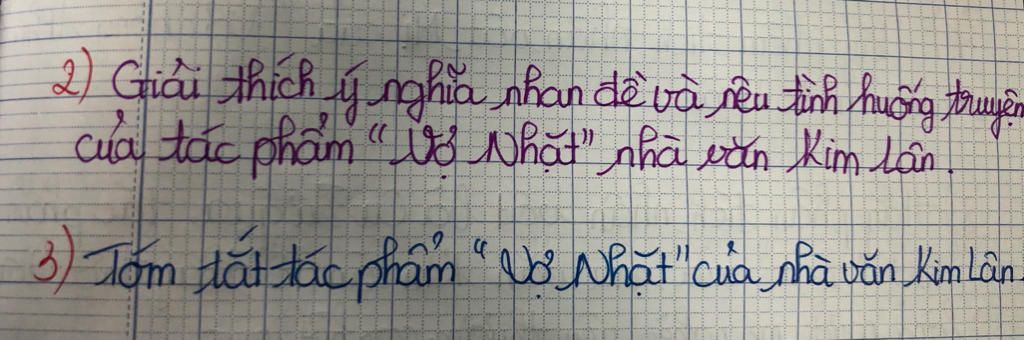 2) Giải thích ý nghĩa nhan đề và nêu tình huống truyện
của tác phẩm "Vợ Nhặt" nhà văn Kim Lân.
3) Tóm tắt tác phẩm "Vợ Nhặt" của nhà văn Kim Lân.